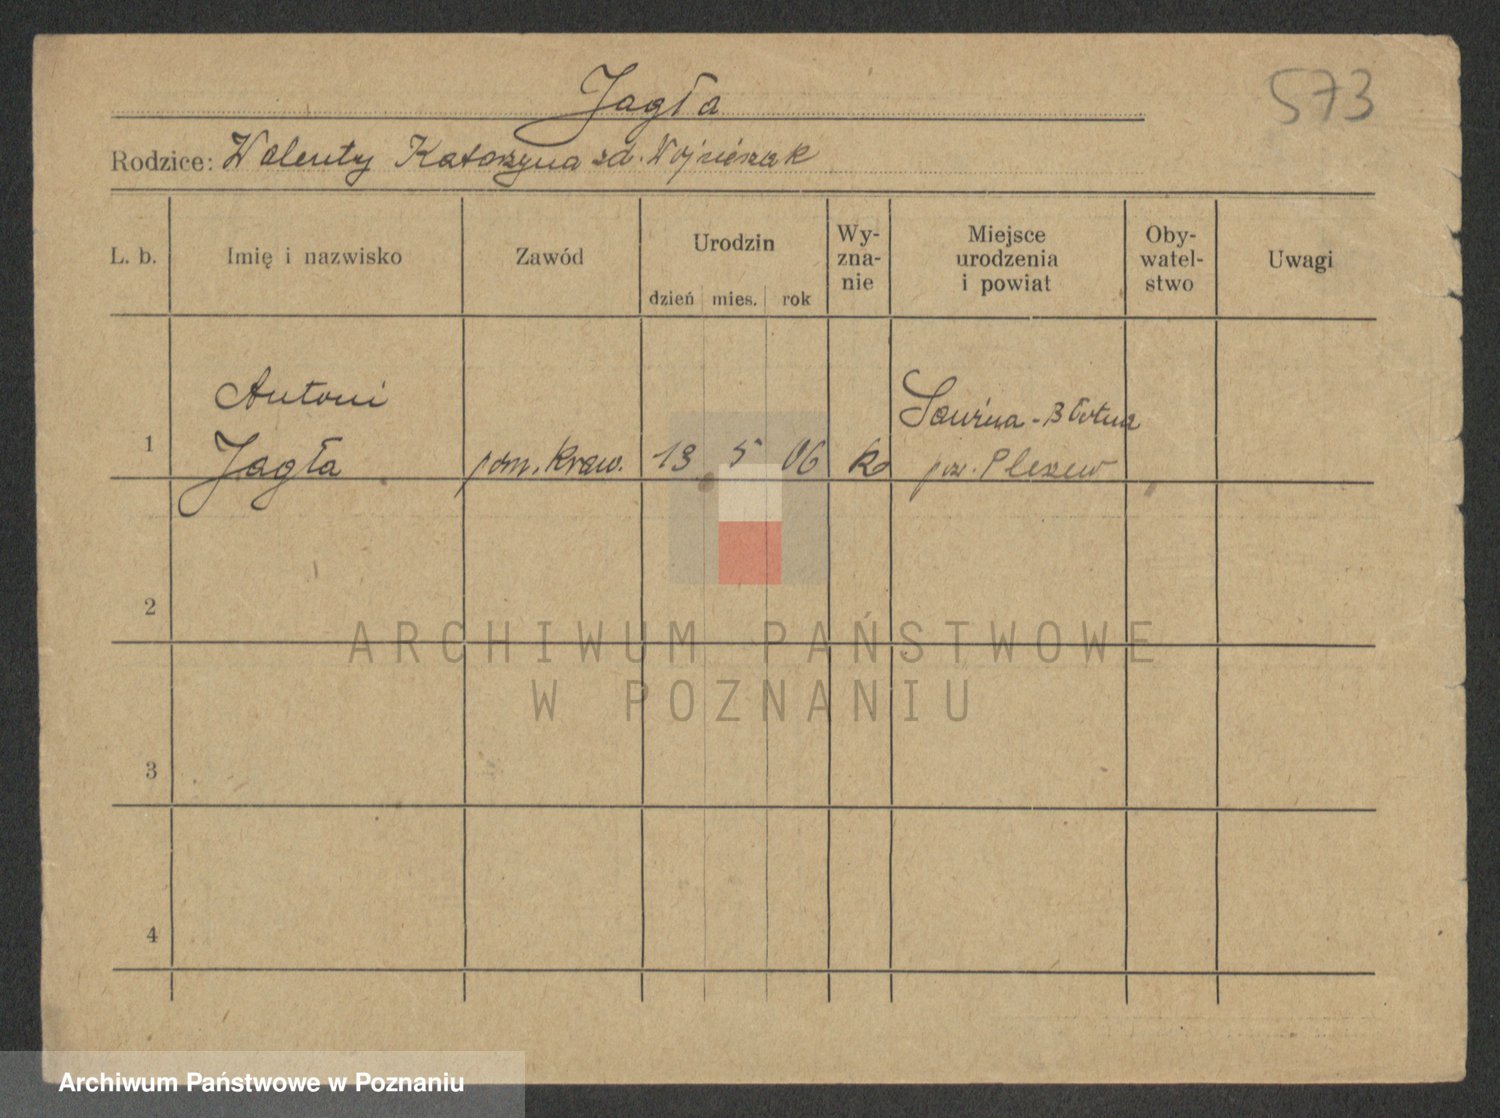 Jagła
573
Rodzice: Walenty Katarzyna zd. Wojcieszak
L. b.
Imię i nazwisko
Zawód
Urodzin
dzień mies. rok
Wy-
zna-
nie
Miejsce
urodzenia
i powiat
Oby-
watel-
stwo
Uwagi
1
Antoni
Jagła
pom. kraw.
13 5 06
kat
Sowina-Błotna
pow. Pleszew
2
3
4
ARCHIWUM PAŃSTWOWE
W POZNANIU
Archiwum Państwowe w Poznaniu